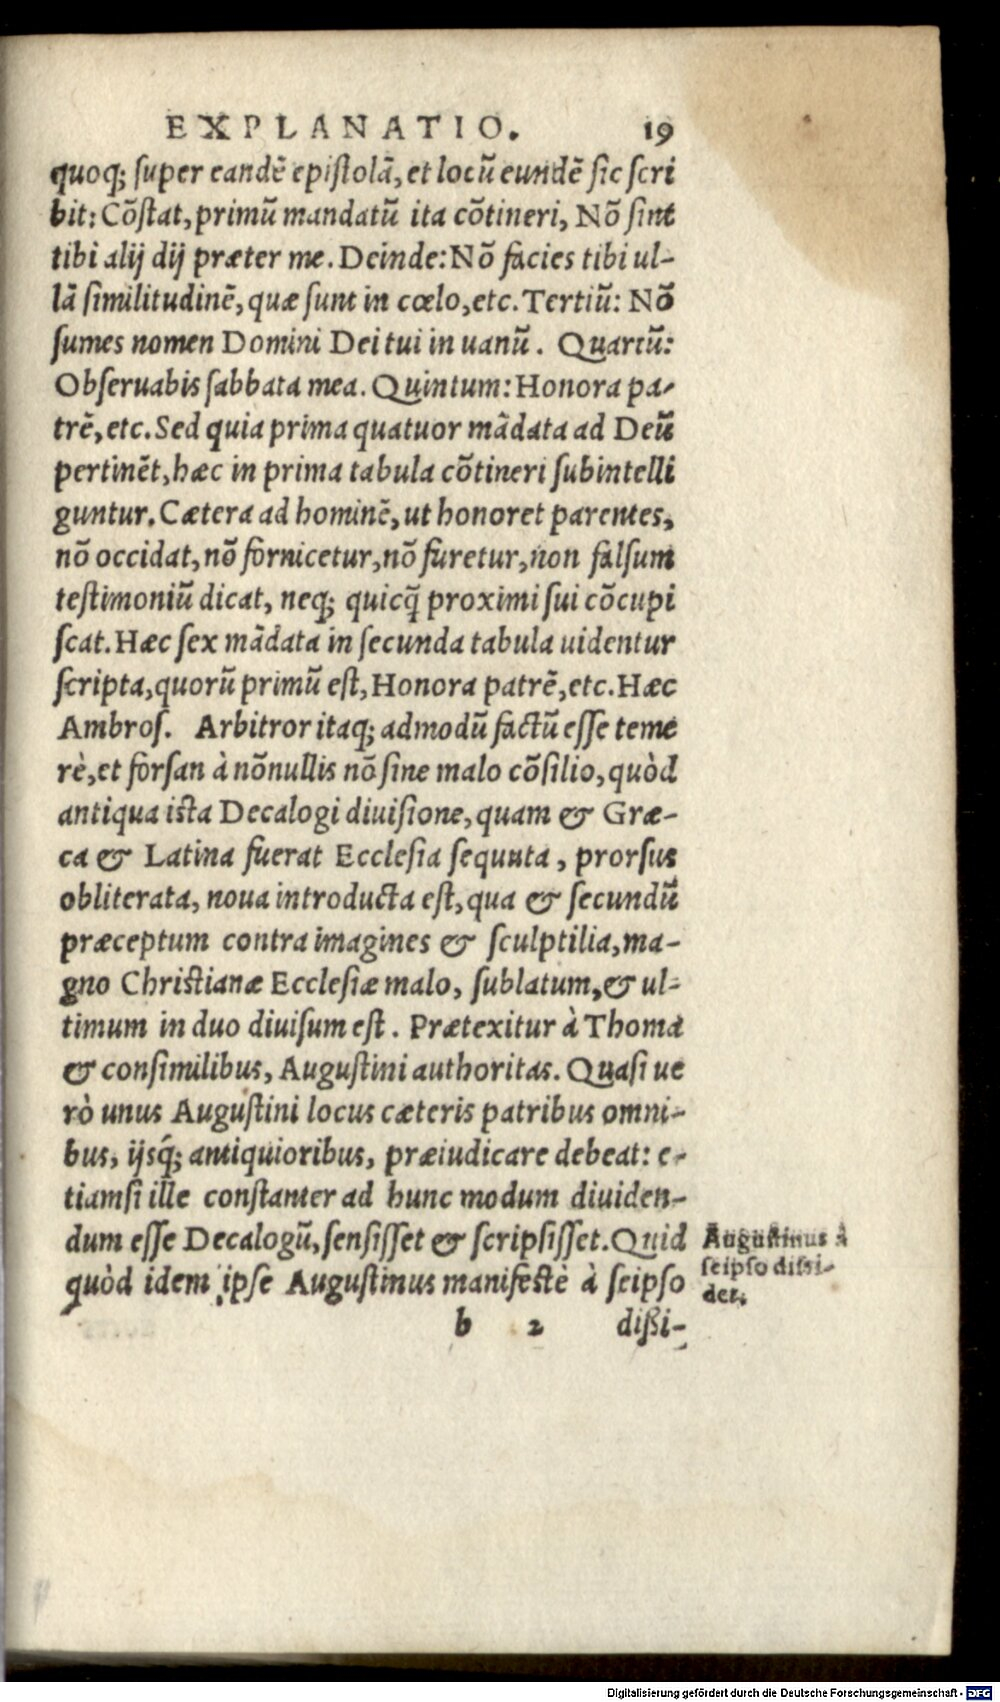 EXPLANATIO. 19
quoq; super eandē epistolā, et locū eundē sic scri
bit: Cōstat, primū mandatū ita cōtineri, Nō sint
tibi alij dij præter me. Deinde: Nō facies tibi ul-
lā similitudinē, quæ sunt in cœlo, etc. Tertiū: Nō
sumes nomen Domini Dei tui in uanū. Quartū:
Obseruabis sabbata mea. Quintum: Honora pa-
trē, etc. Sed quia prima quatuor mādata ad Deū
pertinēt, hæc in prima tabula cōtineri subintelli
guntur. Cætera ad hominē, ut honoret parentes,
nō occidat, nō fornicetur, nō furetur, non falsum
testimoniū dicat, neq; quicq̄ proximi sui cōcupi
scat. Hæc sex mādata in secunda tabula uidentur
scripta, quorū primū est, Honora patrē, etc. Hæc
Ambros. Arbitror itaq; admodū factū esse teme
rè, et forsan à nōnullis nō sine malo cōsilio, quòd
antiqua ista Decalogi diuisione, quam & Græ-
ca & Latina fuerat Ecclesia sequuta, prorsus
obliterata, noua introducta est, qua & secundū
præceptum contra imagines & sculptilia, ma-
gno Christianæ Ecclesiæ malo, sublatum, & ul-
timum in duo diuisum est. Prætexitur à Thoma
& consimilibus, Augustini authoritas. Quasi ue
rò unus Augustini locus cæteris patribus omni-
bus, ijsq́; antiquioribus, præiudicare debeat: e-
tiamsi ille constanter ad hunc modum diuiden-
dum esse Decalogū, sensisset & scripsisset. Quid
quòd idem ipse Augustinus manifestè à seipso
Augustinus à
seipso dissi-
det.
b 2 dißi-
Digitalisierung gefördert durch die Deutsche Forschungsgemeinschaft - DFG